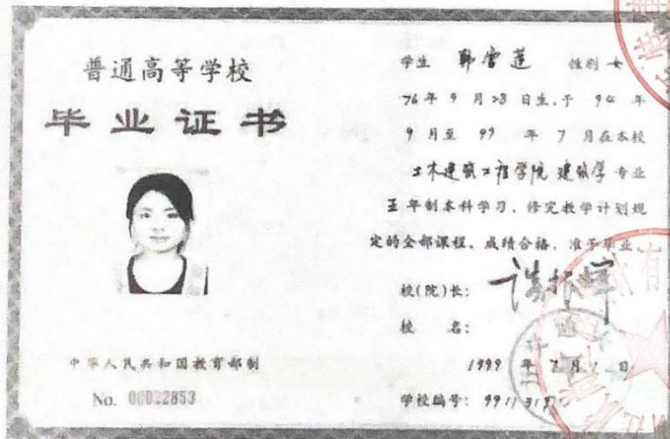 普通高等学校
毕业证书
中华人民共和国教育部制
No. 00022853
学生 郭雪莲 性别 女
76年9月23日生,于 94 年
9月至 99 年 7 月在本校
土木建筑工程学院 建筑学 专业
五年制本科学习,修完教学计划规
定的全部课程,成绩合格,准予毕业。
校(院)长:
校 名:
1999 年 7 月 1 日
学校编号: 991131